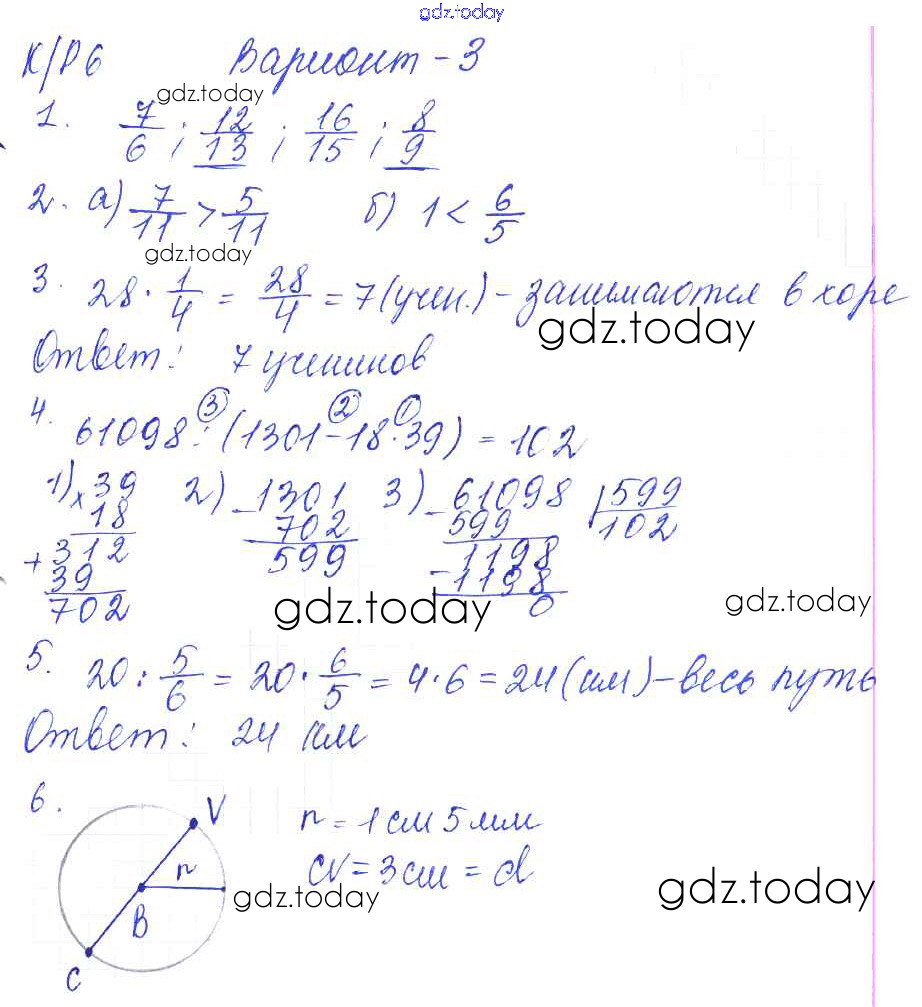 gdz.today
К/Р 6 Вариант - 3
gdz.today
1. 7/6 ; 12/13 ; 16/15 ; 8/9
2. а) 7/11 > 5/11 б) 1 < 6/5
gdz.today
3. 28 · 1/4 = 28/4 = 7 (учен.) - занимаются в хоре
gdz.today
Ответ: 7 учеников
4. 3 2 1
61098 : (1301 - 18 · 39) = 102
1) × 39 2) - 1301 3) - 61098 | 599
18 702 599 102
+ 312 599 1198
39 - 1198
702 0
gdz.today gdz.today
5. 20 : 5/6 = 20 · 6/5 = 4 · 6 = 24 (км) - весь путь
Ответ: 24 км
6. V r = 1 см 5 мм
r CV = 3 см = d
gdz.today gdz.today
B
C